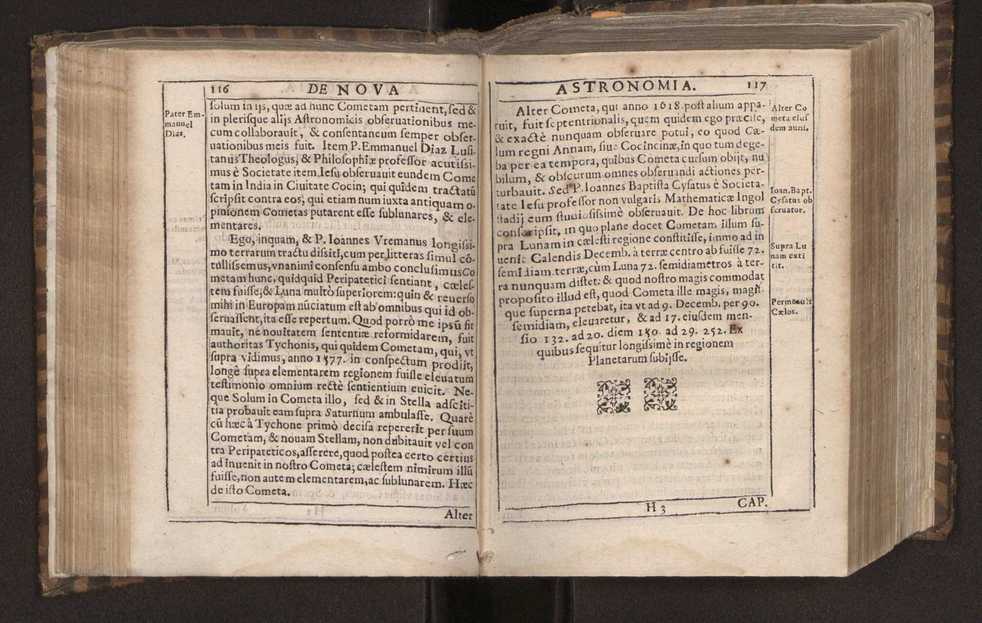 116 DE NOVA
Pater Em-
manuel
Dias.
solum in ijs, quæ ad hunc Cometam pertinent, sed &
in plerisque alijs Astronomicis obseruationibus me-
cum collaborauit, & consentaneum semper obser-
uationibus meis fuit. Item P. Emmanuel Diaz Lusi-
tanus Theologus, & Philosophiæ professor acutissi-
mus è Societate item Iesu obseruauit eundem Come
tam in India in Ciuitate Cocin; qui quidem tractatũ
scripsit contra eos, qui etiam num iuxta antiquam o-
pinionem Cometas putarent esse sublunares, & ele-
mentares.
Ego, inquam, & P. Ioannes Vremanus longissi-
mo terrarum tractu dissiti, cum per litteras simul cõ-
tulissemus, vnanimi consensu ambo conclusimus Co
metam hunc, quidquid Peripatetici sentiant, cæles-
tem fuisse, & Luna multò superiorem: quin & reuerso
mihi in Europam nũciatum est ab omnibus qui id ob-
seruassent, ita esse repertum. Quod porrò me ipsũ fir
mauit, ne nouitatem sententiæ reformidarem, fuit
authoritas Tychonis, qui quidem Cometam, qui, vt
supra vidimus, anno 1577. in conspectum prodijt,
longè supra elementarem regionem fuisse eleuatum
testimonio omnium rectè sentientium euicit. Ne-
que Solum in Cometa illo, sed & in Stella adsciti-
tia probauit eam supra Saturnum ambulasse. Quarè
cũ hæc à Tychone primò decisa repererit per suum
Cometam, & nouam Stellam, non dubitauit vel con
tra Peripateticos, asserere, quod postea certo certius
adinuenit in nostro Cometa; cælestem nimirum illũ
fuisse, non autem elementarem, ac sublunarem. Hæc
de isto Cometa.
Alter
ASTRONOMIA. 117
Alter Cometa, qui anno 1618. post alium appa-
ruit, fuit septentrionalis, quem quidem ego præcise,
& exactè nunquam obseruare potui, eo quod Cæ-
lum regni Annam, siue Cocincinæ, in quo tum dege-
ba per ea tempora, quibus Cometa cursum obijt, nu
bilum, & obscurum omnes obseruandi actiones per-
turbauit. Sed P. Ioannes Baptista Cysatus è Societa-
tate Iesu professor non vulgaris Mathematicæ Ingol
stadij eum studiosissimè obseruauit. De hoc librum
conscripsit, in quo plane docet Cometam illum su-
pra Lunam in cælesti regione constitisse, immo ad in
uenit Calendis Decemb. à terræ centro abfuisse 72.
semidiam. terræ, cùm Luna 72. semidiametros à ter-
ra nunquam distet: & quod nostro magis commodat
proposito illud est, quod Cometa ille magis, magis
que superna petebat, ita vt ad 9. Decemb. per 90.
semidiam, eleuaretur, & ad 17. eiusdem men-
sio 132. ad 20. diem 150. ad 29. 252. Ex
quibus sequitur longissimè in regionem
Planetarum subijsse.
Alter Co
meta eius
dem anni.
Ioan. Bapt.
Cysatus ob
seruator.
Supra Lu
nam exti
tit.
Permeauit
Cælos.
H 3 CAP.